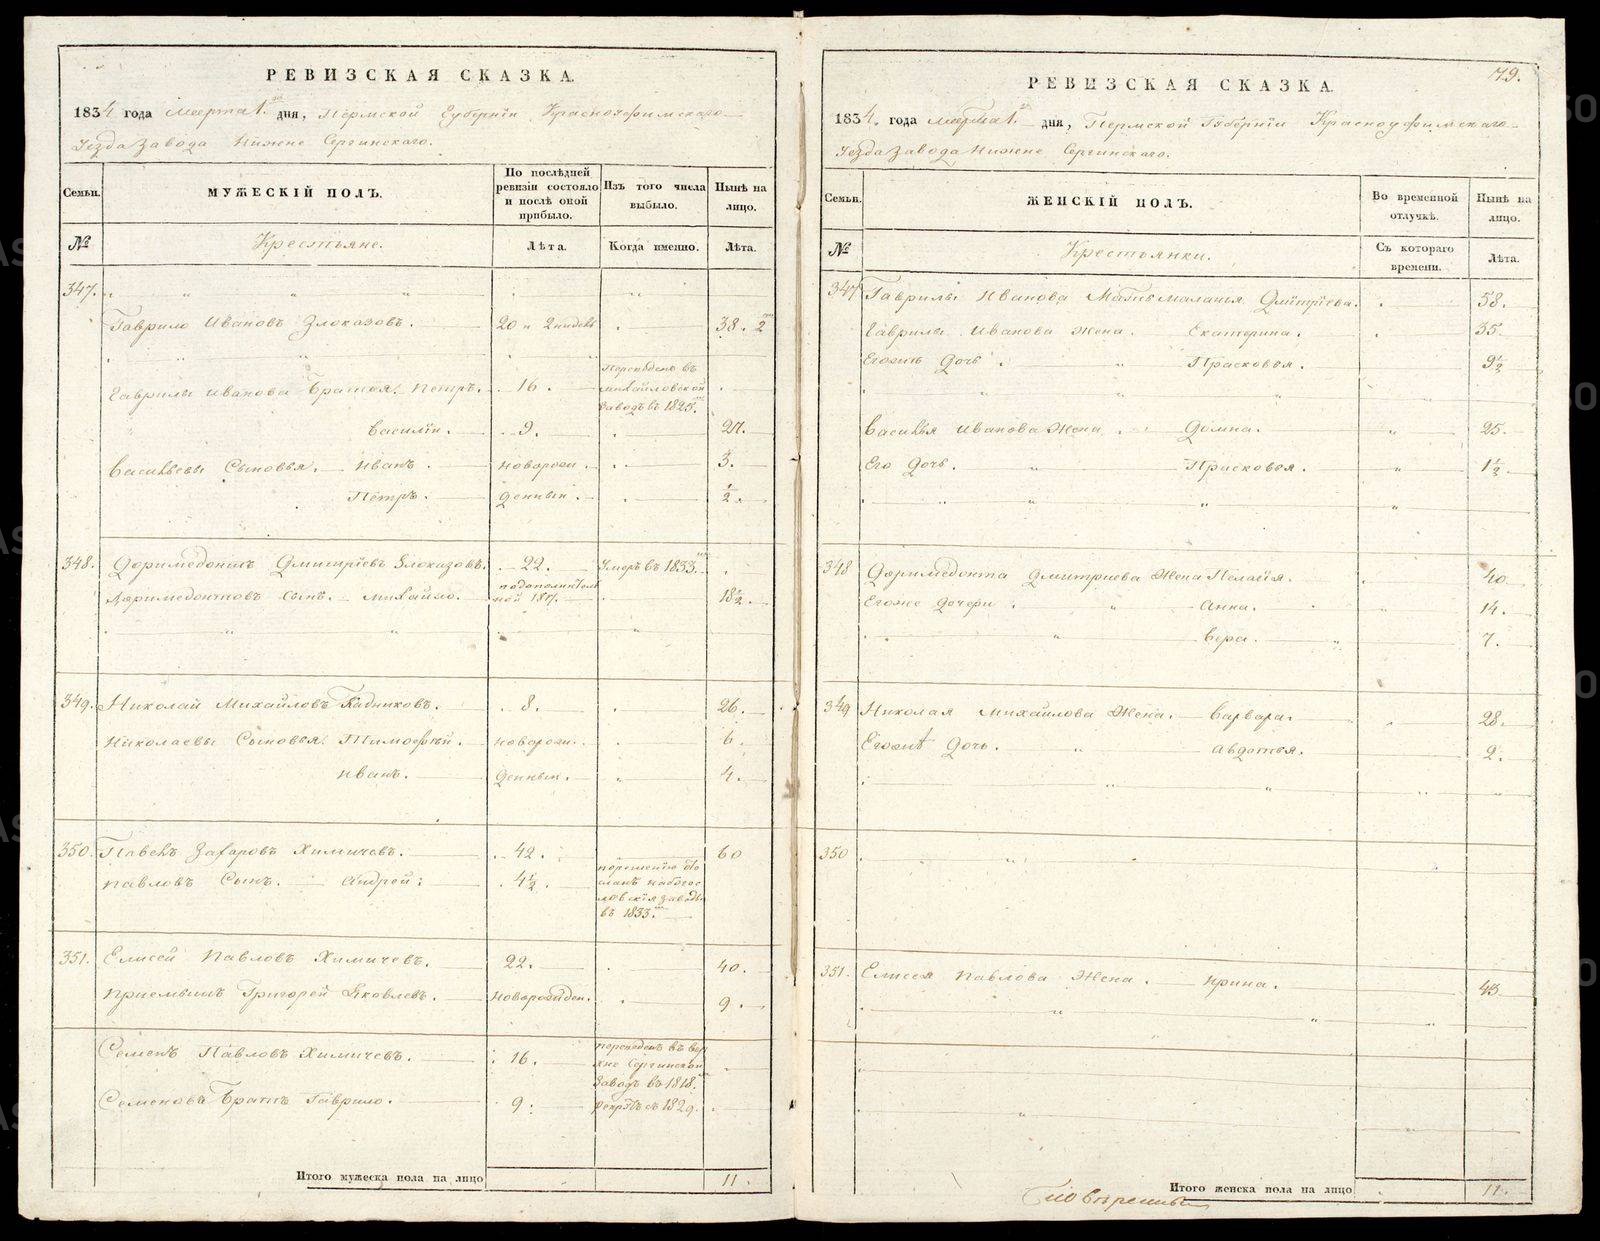 РЕВИЗСКАЯ СКАЗКА.
1834 года Марта 1. дня, Пермской Губерніи Красноуфимскаго
Уезда Завода Нижне Сергинскаго.
Семьи.
МУЖЕСКІЙ ПОЛЪ.
По последней ревизіи состояло и после оной прибыло.
Изъ того числа выбыло.
Ныне на лицо.
№
Крестьяне.
Лѣта.
Когда именно.
Лѣта.
347.
Гаврило Ивановъ Злоказовъ. 20 38. 2
Гаврилы Иванова Братья. Петръ. 16. Переведенъ въ
Михайловской
Заводъ въ 1825.
Василій. 9. 27.
Васильевы Сыновья. Иванъ. новорож 3.
Петръ. денные. 1/2.
348. Доримедонтъ Дмитріевъ Злоказовъ. 22. Умеръ въ 1833.
Доримедонтовъ Сынъ. Михайло. 1817. 18 1/2.
349. Николай Михайловъ Кадниковъ. 8. 26.
Николаевы Сыновья. Тимофѣй. новорож. 6.
Иванъ. денные. 4.
350. Павелъ Захаровъ Химичевъ. 42. 60
Павловъ Сынъ. Андрей: 4 1/2.
въ 1833.
351. Елисей Павловъ Химичевъ. 22. 40.
Приемышъ Григорей Яковлевъ. новорожден. 9.
Семенъ Павловъ Химичевъ. 16. переведенъ въ вер
хне Сергинской
Заводъ въ 1818.
Семенова Братъ Гаврило. 9: 1829.
Итого мужеска пола на лицо 11.
79.
РЕВИЗСКАЯ СКАЗКА.
1834. года Марта 1. дня, Пермской Губерніи Красноуфимскаго
Уезда Завода Нижне Сергинскаго.
Семьи.
ЖЕНСКІЙ ПОЛЪ.
Во временной отлучкѣ.
Нынѣ на лицо.
№
Крестьянки.
Съ котораго времени.
Лѣта.
347 Гаврилы Иванова Мать Маланья Дмитріева. 58.
Гаврилы Иванова Жена. Екатерина. 35.
Егожъ Дочь. Прасковья. 9 1/2
Василья Иванова Жена. Домна. 25.
Его Дочь. Прасковья. 1 1/2.
348 Доримедонта Дмитриева Жена Пелагія. 40
Егоже Дочери. Анна. 14.
Вера. 7.
349 Николая Михайлова Жена. Варвара. 28.
Егожъ Дочь. Авдотья. 2.
350
351. Елисея Павлова Жена. Ирина. 43.
Итого женска пола на лицо 11.